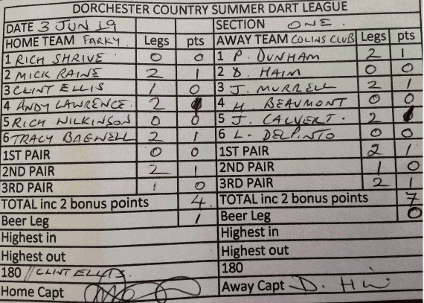 DORCHESTER COUNTRY SUMMER DART LEAGUE
DATE 3 JUN 19 SECTION ONE.
HOME TEAM FARKY. Legs pts AWAY TEAM COLINS CLUB Legs pts
1 RICH SHRIVE 0 0 1 P. DUNHAM 2 1
2 MICK RAINE 2 1 2 D. HAIM 0 0
3 CLINT ELLIS 1 0 3 J. MURRELL 2 1
4 ANDY LAWRENCE. 2 1 4 H. BEAUMONT 0 0
5 RICH WILKINSON 0 0 5 J. CALVERT. 2 1
6 TRACY BAGWELL 2 1 6 L. DELPINTO 0 0
1ST PAIR 0 0 1ST PAIR 2 1
2ND PAIR 2 1 2ND PAIR 1 0
3RD PAIR 1 0 3RD PAIR 2 1
TOTAL inc 2 bonus points 4. TOTAL inc 2 bonus points 7
Beer Leg 1 Beer Leg 0
Highest in Highest in
Highest out Highest out
180 // CLINT ELLIS. 180
Home Capt Away Capt D. H